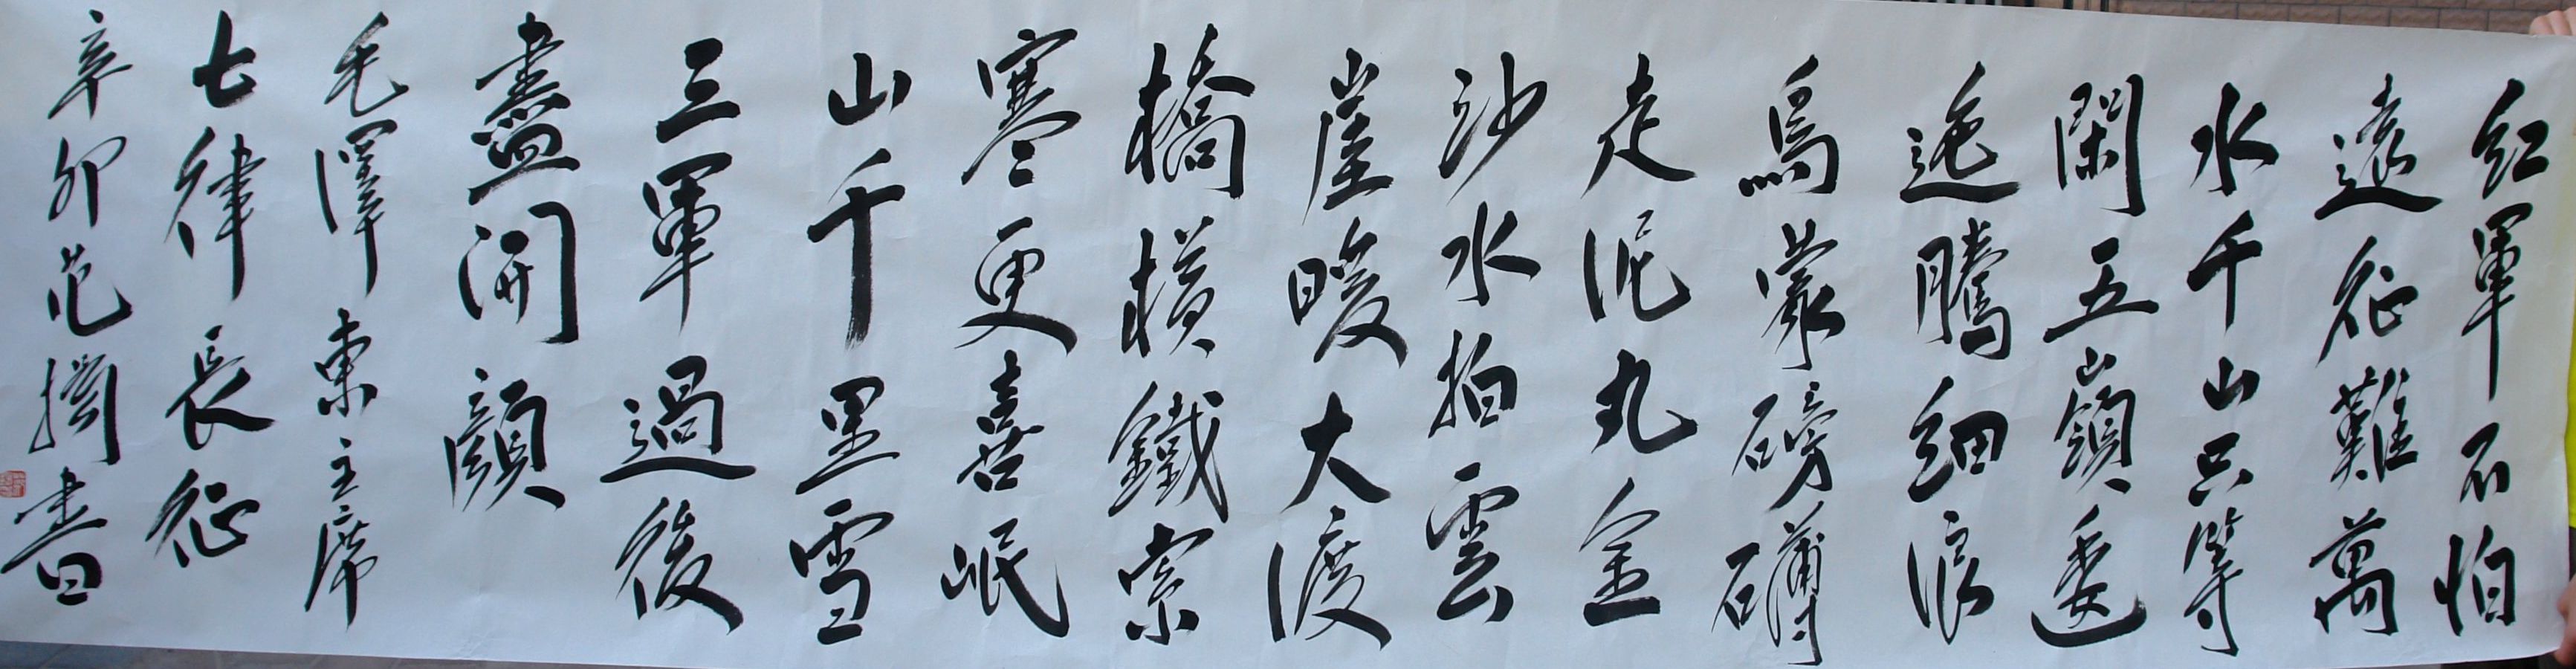 紅軍不怕
遠征難萬
水千山只等
閑五嶺逶
迤騰細浪
烏蒙磅礴
走泥丸金
沙水拍雲
崖暖大渡
橋橫鐵索
寒更喜岷
山千里雪
三軍過後
盡開顏
毛澤東主席
七律長征
辛卯范書